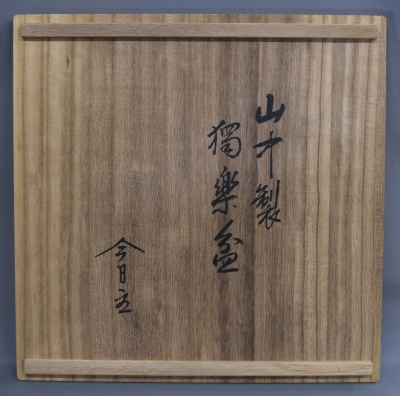 山中製
獨樂盆
今日主